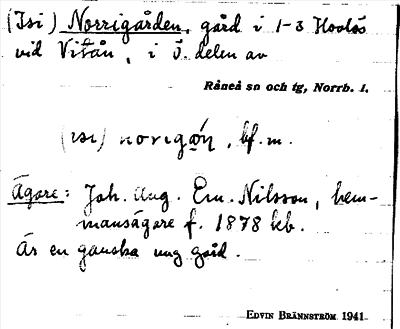 (Isi) Norrigården, gård i 1-3 Hovlös
vid Vitån, i Ö. delen av
Råneå sn och tg, Norrb. l.
(isi) norigɷ́n, bf. m.
Ägare: Joh. Aug. Em. Nilsson, hem-
mansägare f. 1878 kb.
Är en ganska ung gård.
EDVIN BRÄNNSTRÖM 1941